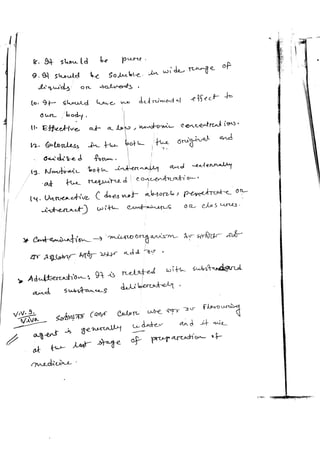 8. It should be pure.
9. It should be soluble in wide range of
liquids or solvents.
10. It should have no detrimental effect to
our body.
11. Effective at a low, concentrations.
12. Colorless in the both the original and
oxidized form.
13. Neutral both internally and externally
at the required concentration.
14. Unreactive (does not absorb, penetrate, or
interact) with containers or closures.
> Contamination → microorganism
add
> Adulteration: It is related with
and substances deliberately.
VIV. 9.
Viva
color use Flavouring
agent is generally and it
at the last stage of preparation of
medicine.